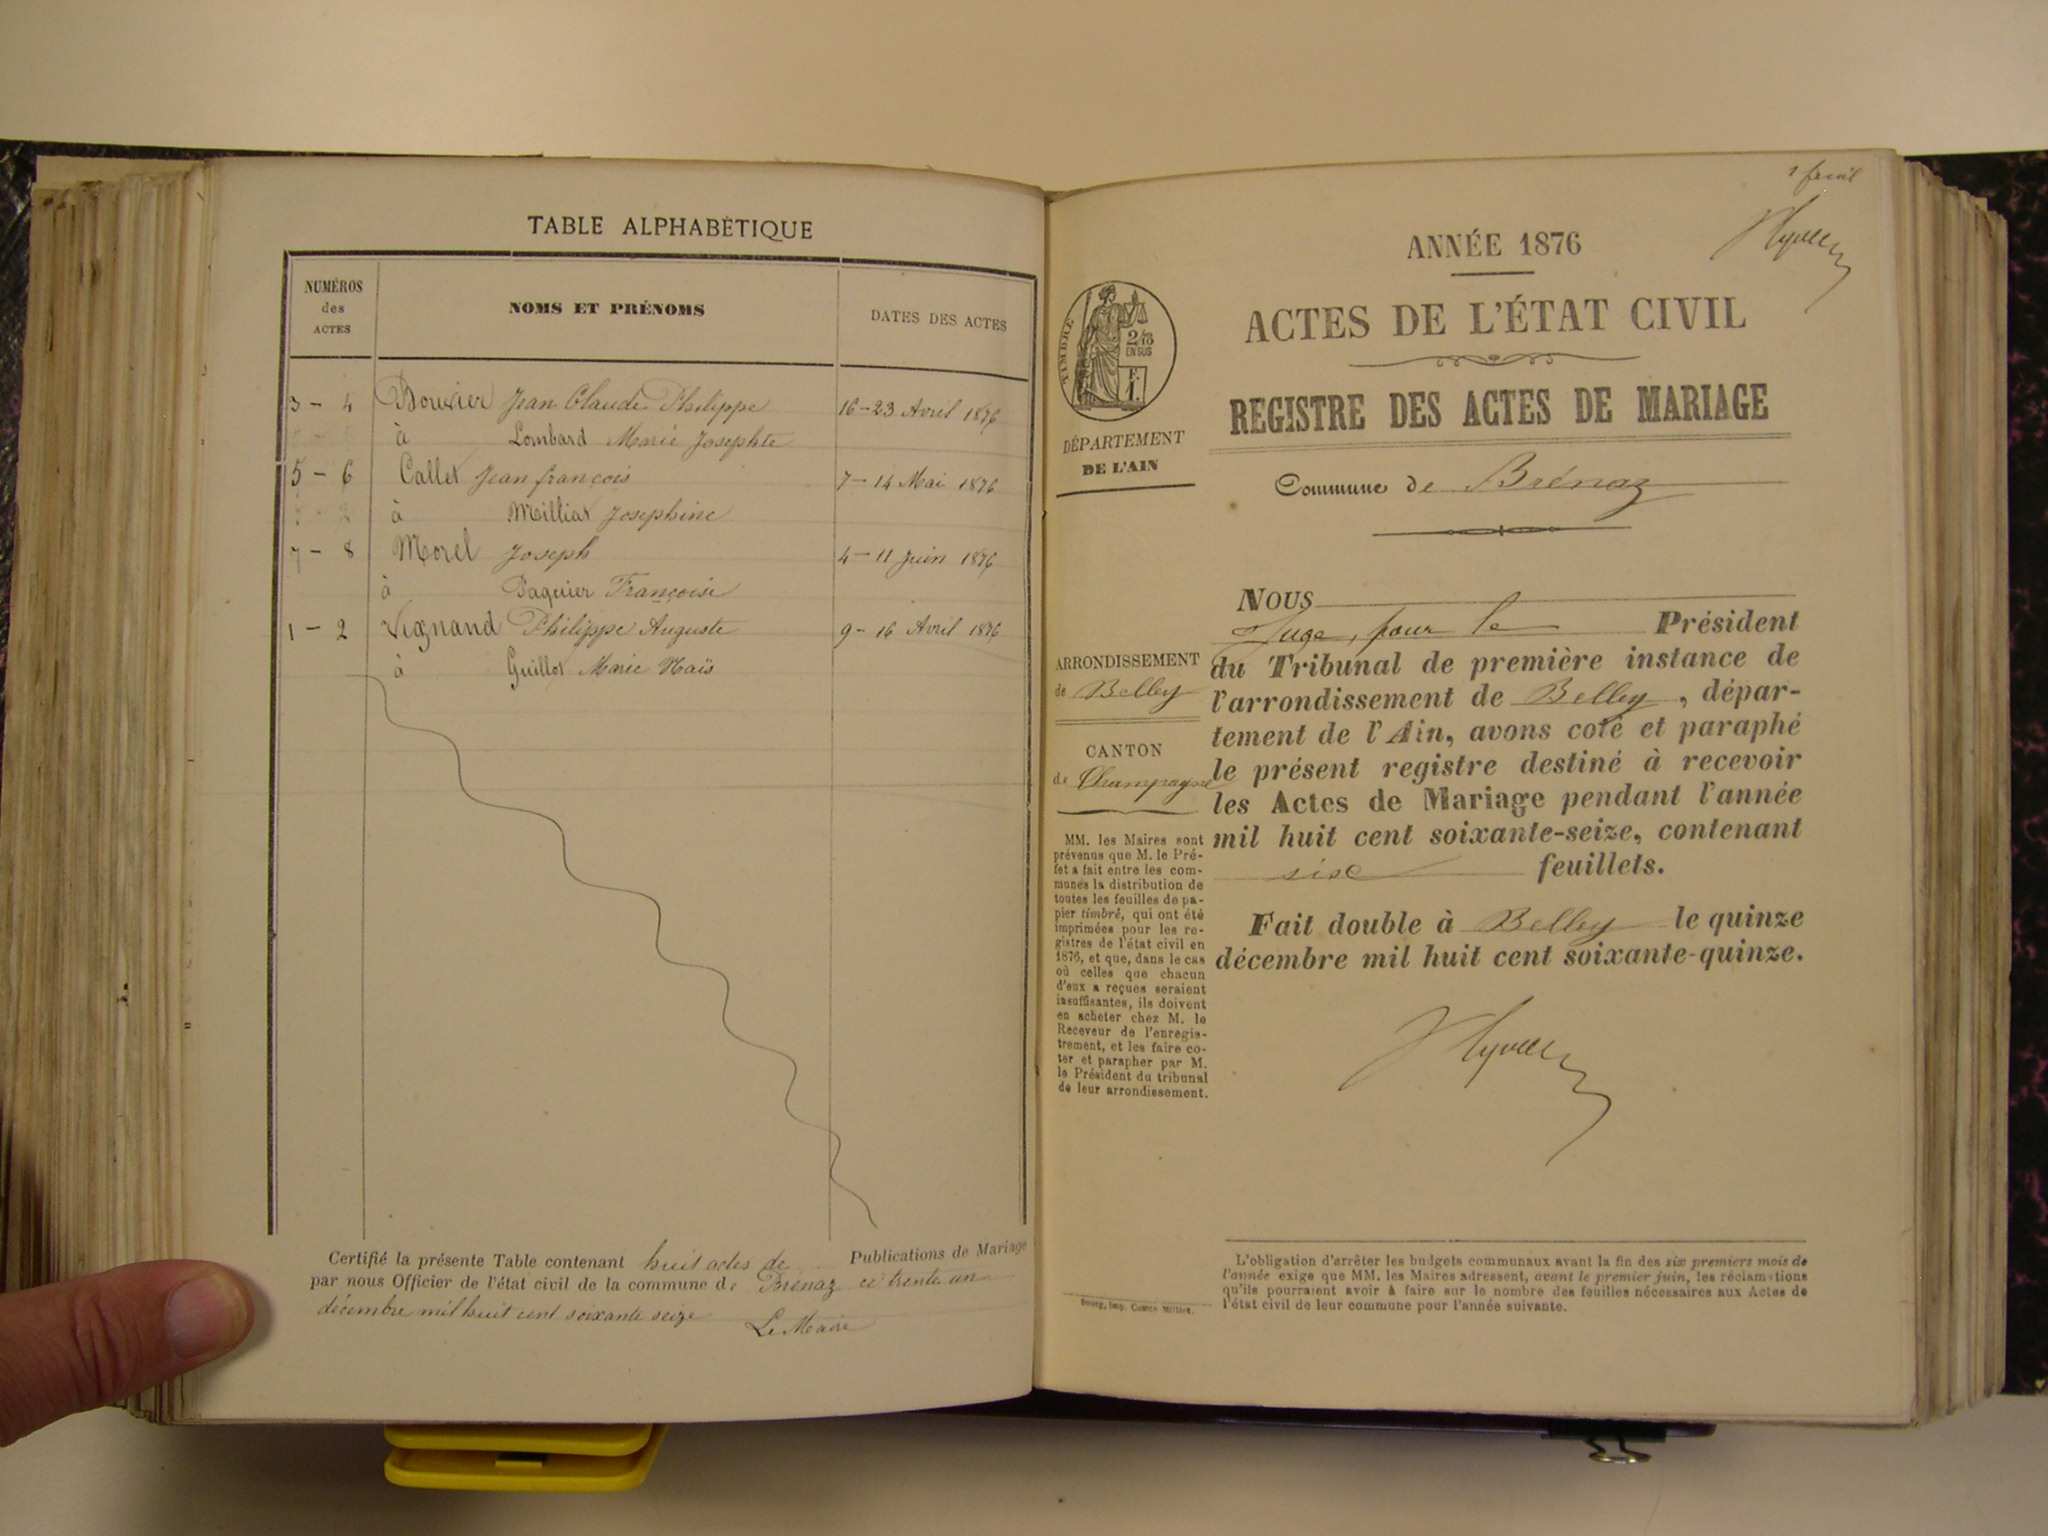 TABLE ALPHABÉTIQUE
NUMÉROS des ACTES
NOMS ET PRÉNOMS
DATES DES ACTES
3 - 4 Bouvier Jean Claude Philippe 16-23 Avril 1876
à Lombard Marie Josephte
5 - 6 Callet Jean françois 7-14 Mai 1876
à Milliat Josephine
7 - 8 Morel Joseph 4-11 Juin 1876
à Paquier Françoise
1 - 2 Vignand Philippe Auguste 9-16 Avril 1876
à Guillot Marie Naïs
Certifié la présente Table contenant huit actes de Publications de Mariage
par nous Officier de l'état civil de la commune de Brénaz ce trente un
décembre mil huit cent soixante seize
Le Maire
1 feuil
ANNÉE 1876
ACTES DE L'ÉTAT CIVIL
REGISTRE DES ACTES DE MARIAGE
Commune de Brénaz
TIMBRE
2/10
EN SUS
F.
1.
DÉPARTEMENT
DE L'AIN
ARRONDISSEMENT
de Belley
CANTON
de Champagne
MM. les Maires sont
prévenus que M. le Pré-
fet a fait entre les com-
munes la distribution de
toutes les feuilles de pa-
pier timbré, qui ont été
imprimées pour les re-
gistres de l'état civil en
1876, et que, dans le cas
où celles que chacun
d'eux a reçues seraient
insuffisantes, ils doivent
en acheter chez M. le
Receveur de l'enregis-
trement, et les faire co-
ter et parapher par M.
le Président du tribunal
de leur arrondissement.
NOUS
Juge, pour le Président
du Tribunal de première instance de
l'arrondissement de Belley, dépar-
tement de l'Ain, avons coté et paraphé
le présent registre destiné à recevoir
les Actes de Mariage pendant l'année
mil huit cent soixante-seize, contenant
six feuillets.
Fait double à Belley le quinze
décembre mil huit cent soixante-quinze.
L'obligation d'arrêter les budgets communaux avant la fin des six premiers mois de
l'année exige que MM. les Maires adressent, avant le premier juin, les réclamations
qu'ils pourraient avoir à faire sur le nombre des feuilles nécessaires aux Actes de
l'état civil de leur commune pour l'année suivante.
Bourg, Imp. Comte Milliet.